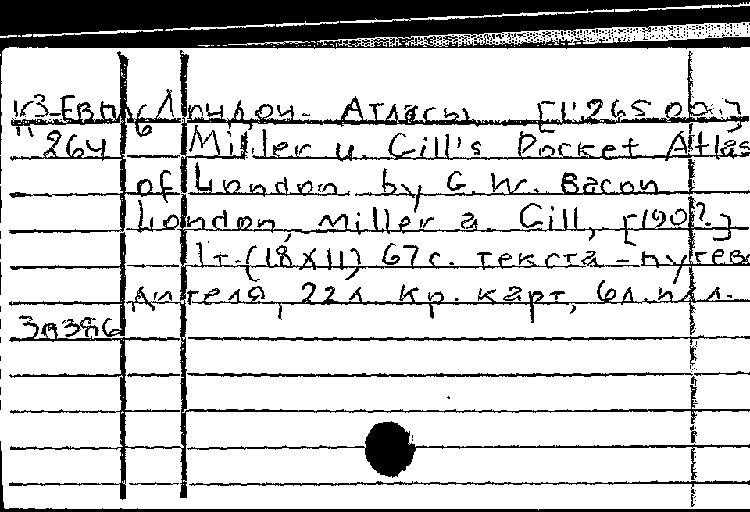 К3-Евп
п
264
6
Лондон. Атласы [1:265 00.]
Miller u. Gill's Pocket Atlas
of London by G. W. Bacon
London, Miller a. Gill, [190?.]
1т. (18X11) 67 с. текста - путев
дителя, 22 л. кр. карт, 6 л. илл.
38386